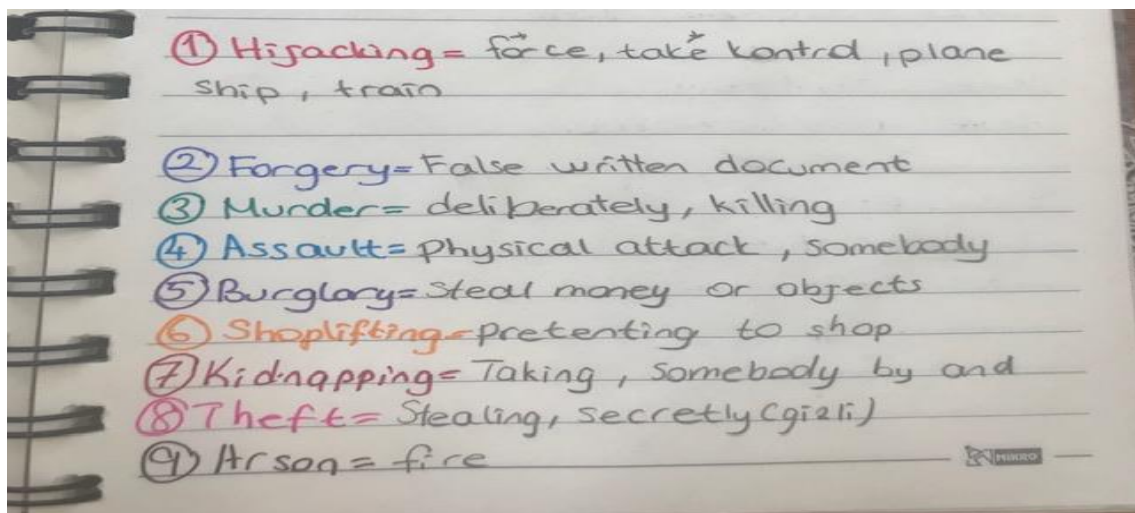 ① Hijacking = force, take kontrol, plane
ship, train
② Forgery = False written document
③ Murder = deliberately, killing
④ Assault = Physical attack, somebody
⑤ Burglary = Steal money or objects
⑥ Shoplifting = pretenting to shop
⑦ Kidnapping = Taking, somebody by and
⑧ Theft = Stealing, secretly (gizli)
⑨ Arson = fire
MIKRO